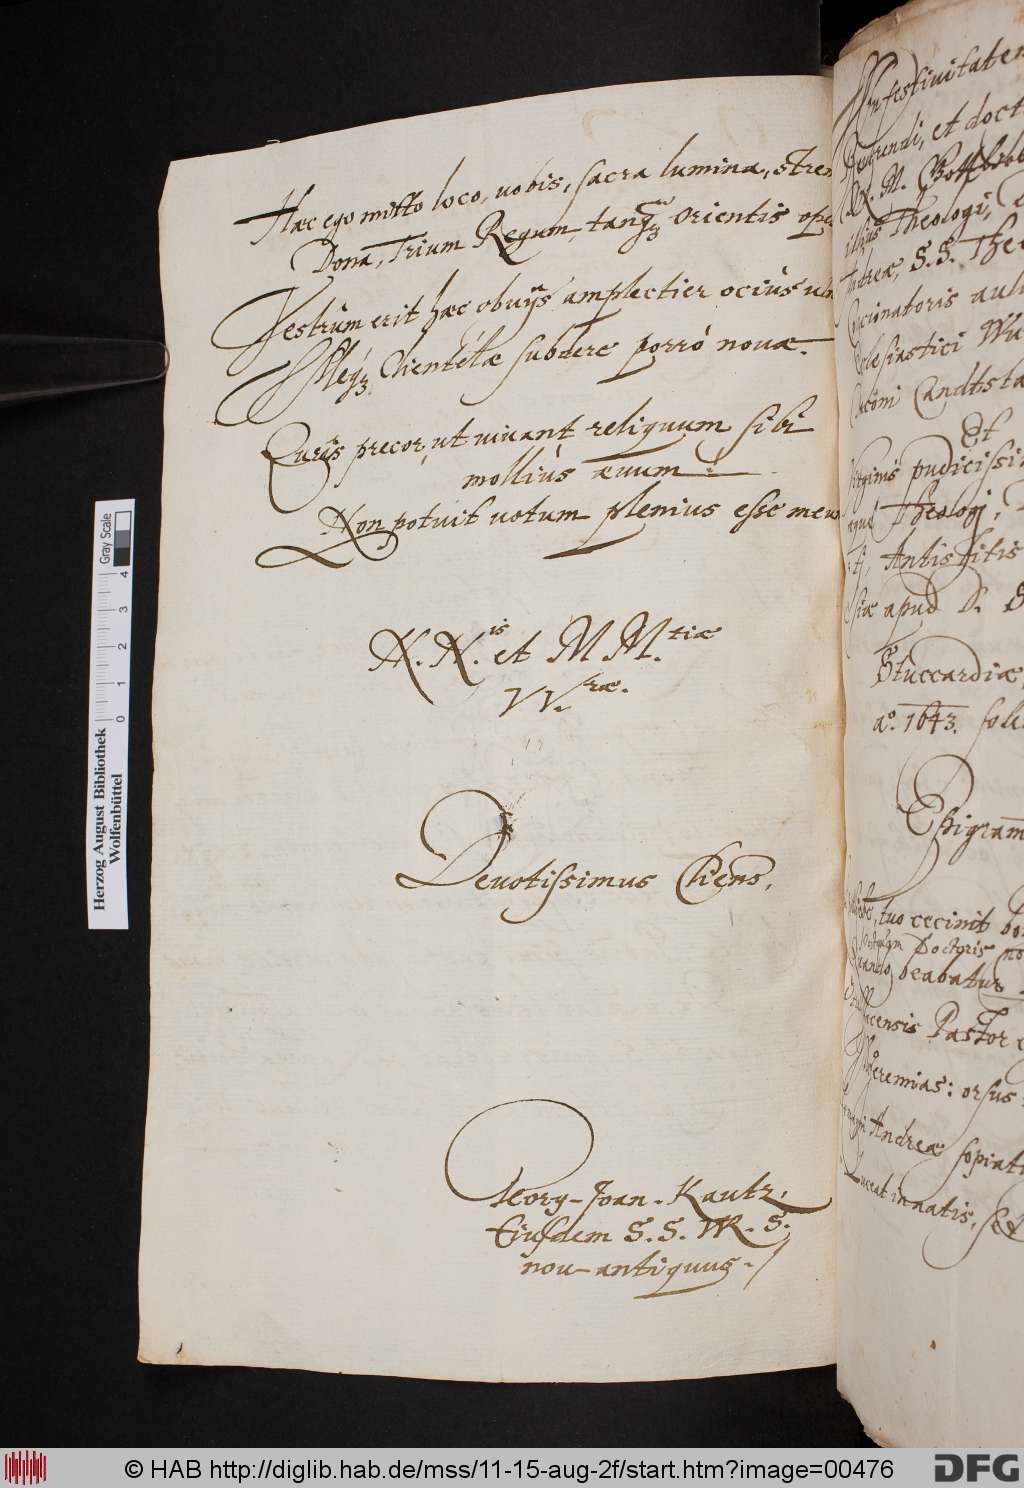 Hæc ego mitto loco, vobis, sacra lumina, stren
Dona, Trium Regum, tanq; Orientis ope
Vestrûm erit hæc obvijs amplectier ociùs uln
Meq; Clientélæ subdere porrò novæ.
Qureis precor, ut vivant reliquum sibi
molliùs ævum:
Non potuit votum plenius esse meu
N. N.is et M M.tiæ
VV.ræ.
Devotissimus Cliens,
Georg-Joan. Kautz,
Eiusdem S. S. M. S.
nov-antiquus.
festivitatem
Reverendi, et doct
illius Theologi,
Andreæ, S. S. Theo
Concionatoris auli
clesiastici Wü
Et
Virginis pudicissi
Theologi,
Antistitis
apud D.
Stuccardiæ,
aº. 1643. sole
Epigram
tuo cecinit
Doctoris
Quando beabatur
Pastor
Jeremias: orsus
Andreæ sopiat
Luceat in natis,
Herzog August Bibliothek
Wolfenbüttel
Gray Scale
0 1 2 3 4
© HAB http://diglib.hab.de/mss/11-15-aug-2f/start.htm?image=00476
DFG